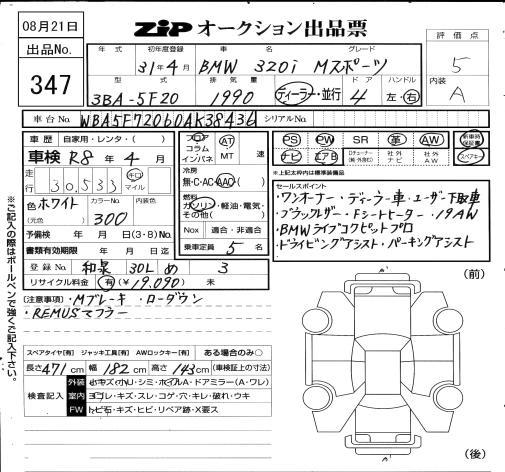 08月21日
ZIP オークション出品票
出品No.
347
評価点
5
内装
A
年式 初年度登録 車名 グレード
31年4月 BMW 320i Mスポーツ
型式 排気量 ドア ハンドル
3BA-5F20 1990 ディーラー・並行 4 左・右
車台No. WBA5F72060AK38436 シリアルNo.
車歴 自家用・レンタ・( )
車検 R8年4月
走行 30,533 キロ マイル
色 ホワイト カラーNo. 300 内装色
(元色)
予備検 年 月 日(3・8)No.
書類有効期限 年 月 日迄
登録No. 和泉 30L め 3
リサイクル料金 有(¥19,090) 未
フロア コラム インパネ AT MT 速
冷房 無・C・AC・AAC・( )
燃料 ガソリン・軽油・電気・その他( )
Nox 適合・非適合
乗車定員 5 名
PS PW SR 革 AW 新車時保証書
ナビ エアB Dチューナー(純・外含む) 社外ナビ 社外AW スペアキー
*上記太枠内は標準装備品
セールスポイント
・ワンオーナー・ディーラー車・ユーザー下取車
・ブラックレザー・Fシートヒーター・19AW
・BMWライブコクピットプロ
・ドライビングアシスト・パーキングアシスト
(注意事項)・Mブレーキ ・ローダウン
・REMUSマフラー
スペアタイヤ[有] ジャッキ工具[有] AWロックキー[有] ある場合のみ○
長さ 471 cm 幅 182 cm 高さ 143 cm (車検証上の寸法)
検査記入
外装 キズ・シミ・ホイルA・ドアミラー(A・ワレ)
室内 ヨゴレ・キズ・スレ・コゲ・穴・キレ・破れ・ウキ
FW トビ石・キズ・ヒビ・リペア跡・X要ス
(前)
(後)
※ご記入の際はボールペンで強くご記入下さい。